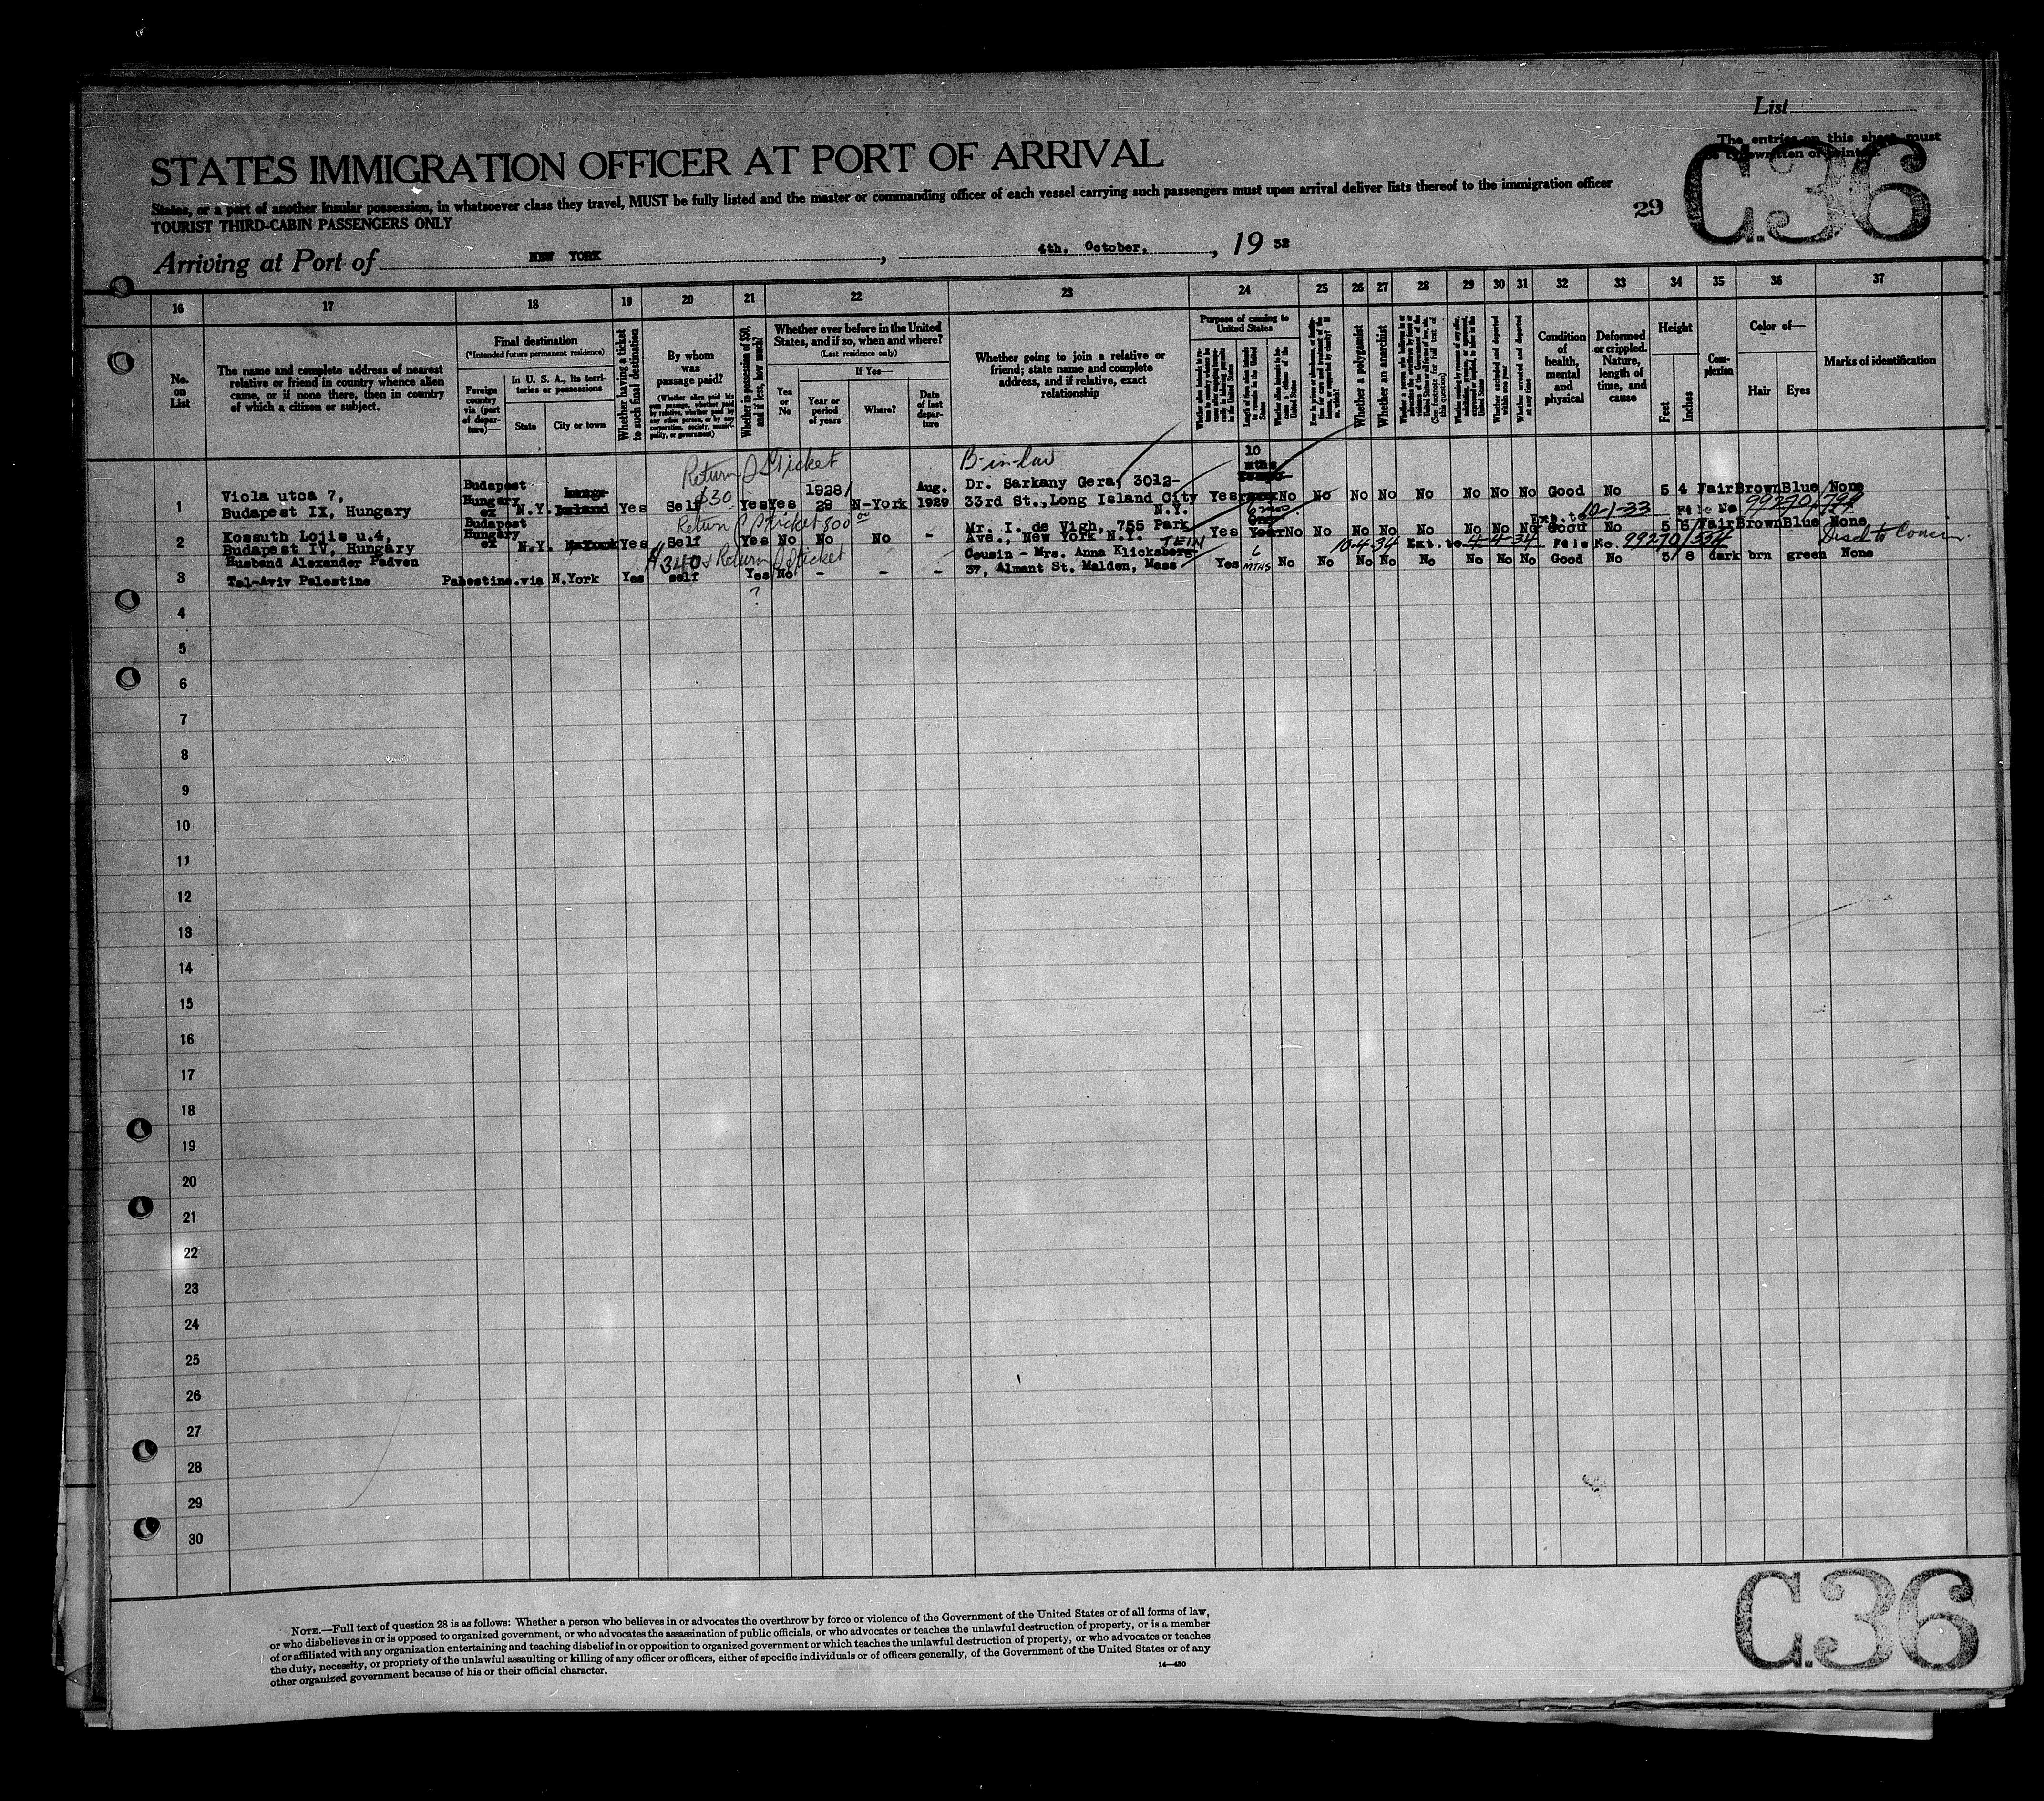 List
The entries on this sheet must
be typewritten or printed.
C.36
STATES IMMIGRATION OFFICER AT PORT OF ARRIVAL
States, or a port of another insular possession, in whatsoever class they travel, MUST be fully listed and the master or commanding officer of each vessel carrying such passengers must upon arrival deliver lists thereof to the immigration officer
29
TOURIST THIRD-CABIN PASSENGERS ONLY
Arriving at Port of NEW YORK, 4th. October, , 19 32
16 17 18 19 20 21 22 23 24 25 26 27 28 29 30 31 32 33 34 35 36 37
No. on List
The name and complete address of nearest
relative or friend in country whence alien
came, or if none there, then in country
of which a citizen or subject.
Final destination
(*Intended future permanent residence)
Foreign country via (port of departure)—
In U. S. A., its territories or possessions
State
City or town
Whether having a ticket to such final destination
By whom was passage paid?
(Whether alien paid his own passage, whether paid by relative, whether paid by any other person, or by any corporation, society, municipality, or government)
Whether in possession of $50, and if less, how much?
Whether ever before in the United
States, and if so, when and where?
(Last residence only)
Yes or No
If Yes—
Year or period of years
Where?
Date of last departure
Whether going to join a relative or
friend; state name and complete
address, and if relative, exact
relationship
Purpose of coming to United States
Length of time alien intends to remain in the United States
Whether alien intends to become a citizen of the United States
Whether a polygamist
Whether an anarchist
(See footnote for full text of this question)
Whether excluded and deported within one year
Whether arrested and deported at any time
Condition of health, mental and physical
Deformed or crippled. Nature, length of time, and cause
Height
Feet
Inches
Complexion
Color of—
Hair
Eyes
Marks of identification
Return Ticket
B-in-law
10
mths
1
Viola utca 7,
Budapest IX, Hungary
Budapest
Hungary
ex
N.Y.
Long-
Island
Yes
Self
$30
Yes Yes
1928/
29
N-York
Aug.
1929
Dr. Sarkany Gera, 3012-
33rd St., Long Island City
N.Y.
Yes No No No No No No No No Good No 5 4 Fair Brown Blue None
Ext. to 10-1-33 File No 99270/799
2
Kossuth Lojis u.4,
Budapest IV, Hungary
Budapest
Hungary
ex
N.Y. N-York Yes
Return Ticket 800 00
Self
Yes No No No -
Mr. I. de Vigh, 755 Park
Ave., New York N.Y.
6 mos
One
Yes Year No No No No No No No No Good No 5 6 Fair Brown Blue None
10-4-34 Ext. to 4-4-34 File No. 99270/334 Disc to Cousin.
3
Husband Alexander Padven
Tel-Aviv Palestine
Palestine.via N.York Yes
$340 + Return Ticket
self
Yes No - - -
?
TEIN
Cousin - Mrs. Anna Klicksberg
37, Almant St. Malden, Mass
Yes 6 MTHS No No No No No No No No Good No 5 8 dark brn green None
4
5
6
7
8
9
10
11
12
13
14
15
16
17
18
19
20
21
22
23
24
25
26
27
28
29
30
NOTE.—Full text of question 28 is as follows: Whether a person who believes in or advocates the overthrow by force or violence of the Government of the United States or of all forms of law,
or who disbelieves in or is opposed to organized government, or who advocates the assassination of public officials, or who advocates or teaches the unlawful destruction of property, or is a member
of or affiliated with any organization entertaining and teaching disbelief in or opposition to organized government or which teaches the unlawful destruction of property, or who advocates or teaches
the duty, necessity, or propriety of the unlawful assaulting or killing of any officer or officers, either of specific individuals or of officers generally, of the Government of the United States or of any
other organized government because of his or their official character.
14—430
C.36